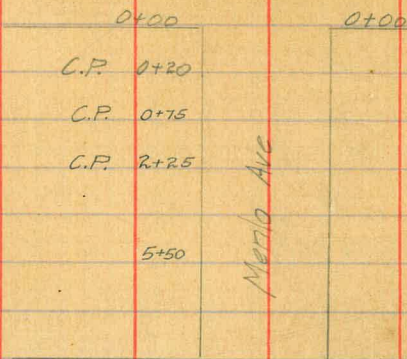 0+00 0+00
C.P. 0+20
C.P. 0+75
C.P. 2+25
5+50
Menlo Ave